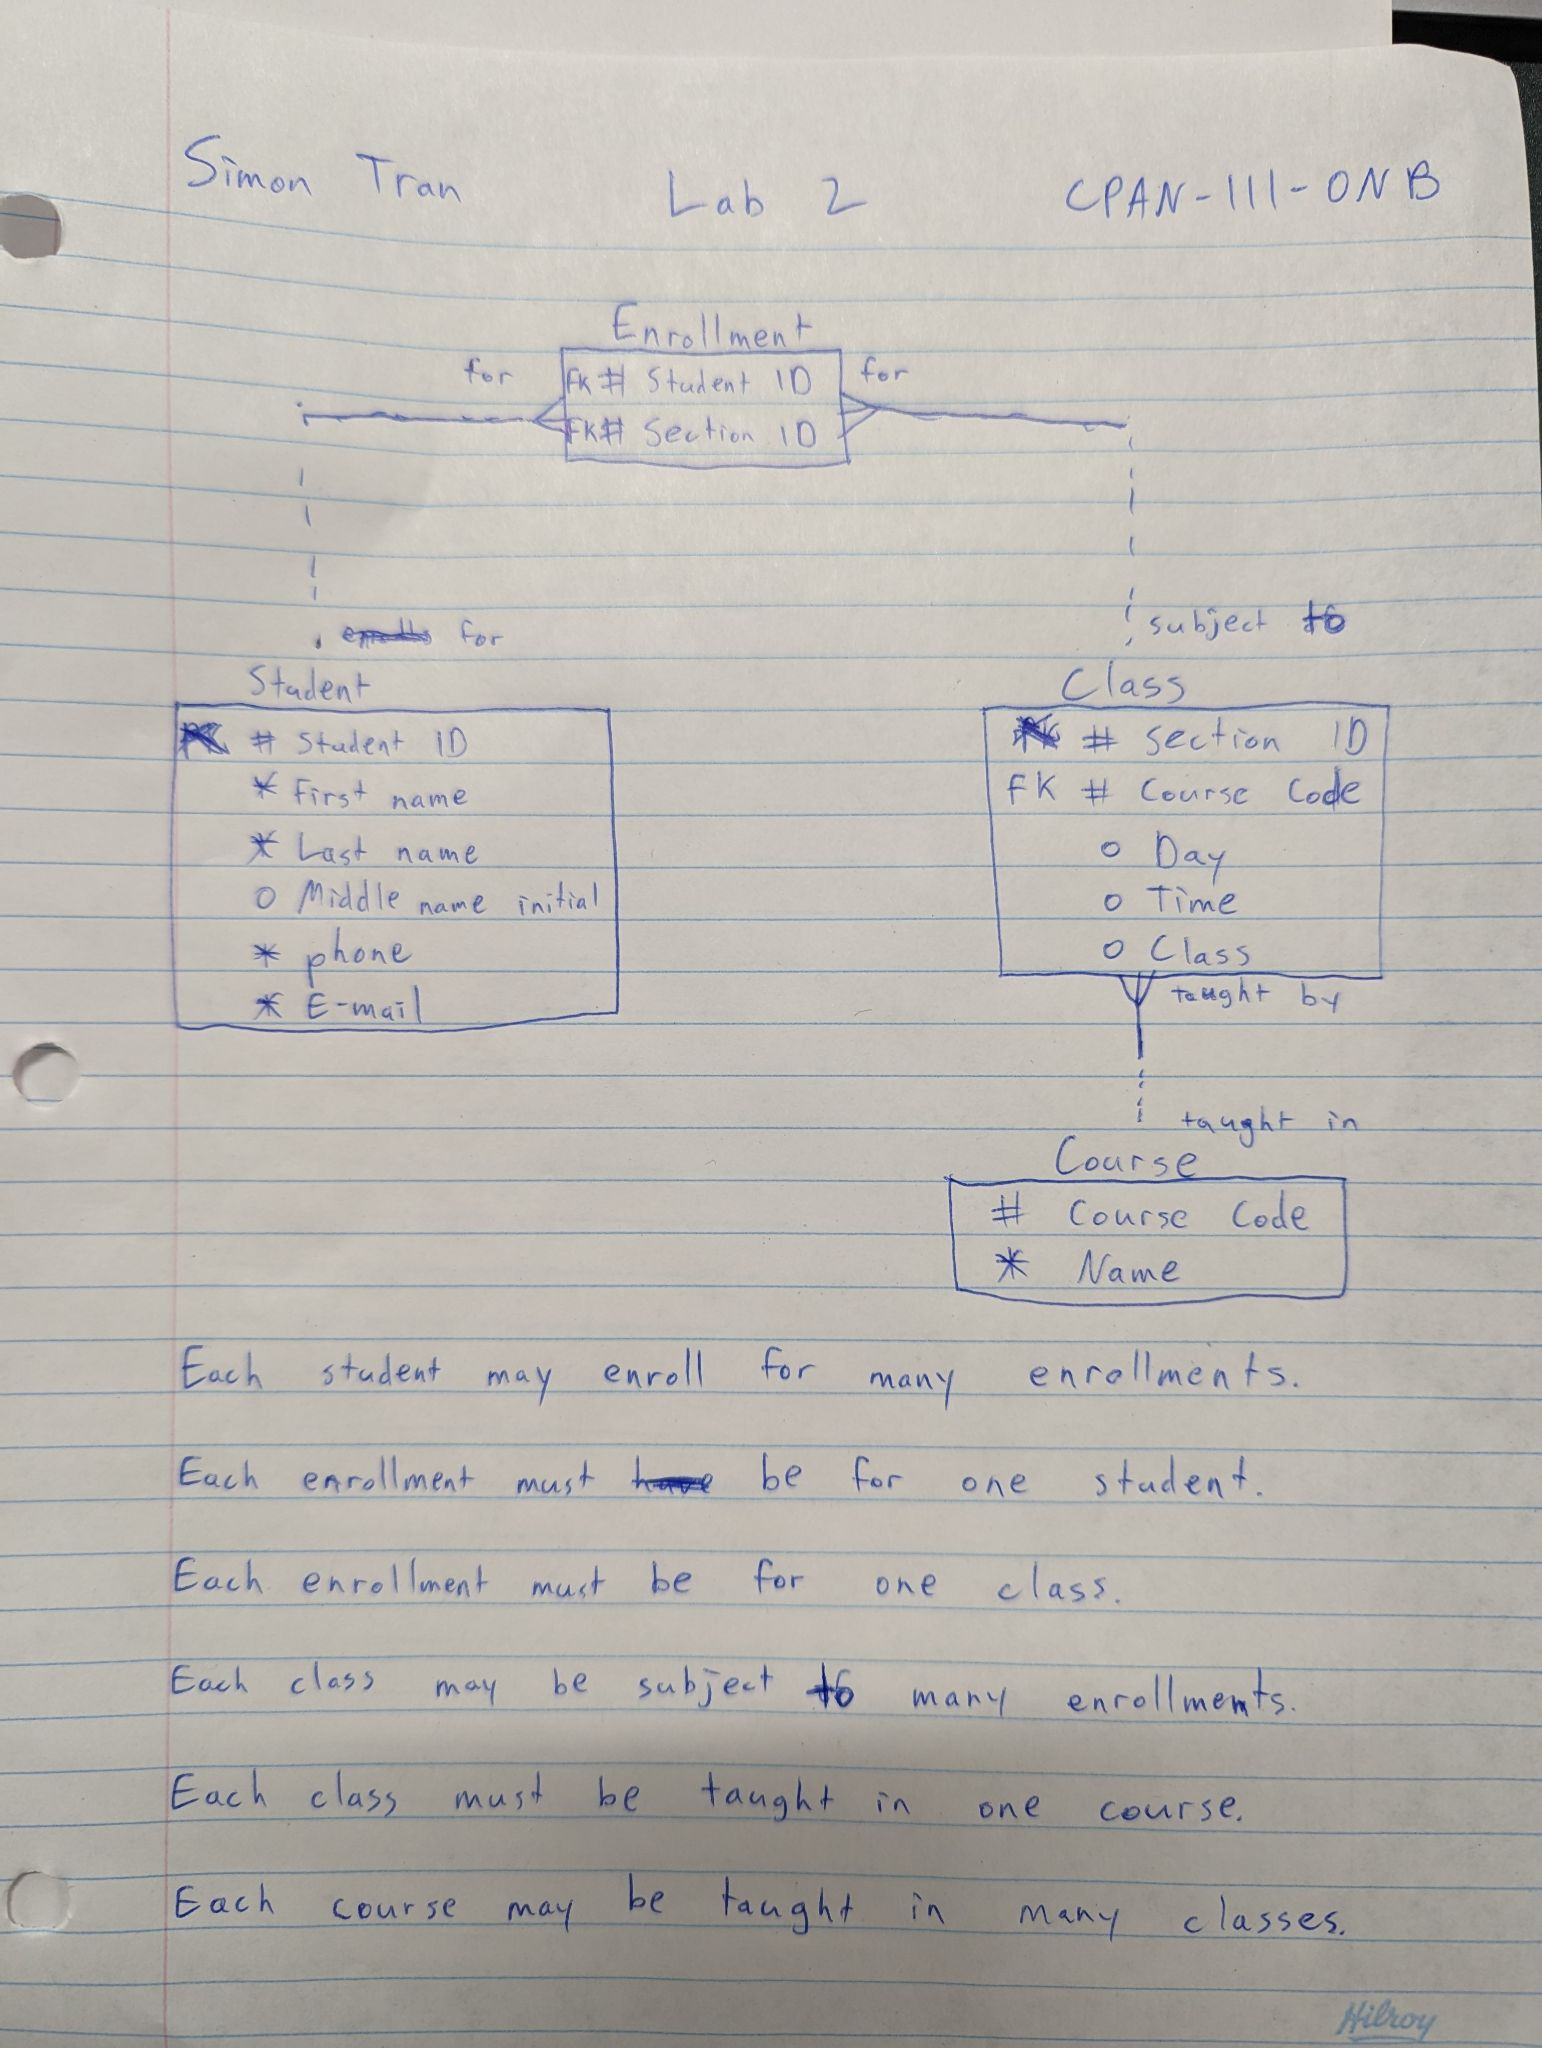 Simon Tran Lab 2 CPAN-111-ONB
Enrollment
for FK # Student ID for
FK # Section ID
for subject to
Student
# Student ID
* First name
* Last name
o Middle name initial
* phone
* E-mail
Class
# Section ID
FK # Course Code
o Day
o Time
o Class
taught by
taught in
Course
# Course Code
* Name
Each student may enroll for many enrollments.
Each enrollment must be for one student.
Each enrollment must be for one class.
Each class may be subject to many enrollments.
Each class must be taught in one course.
Each course may be taught in many classes.
Hilroy